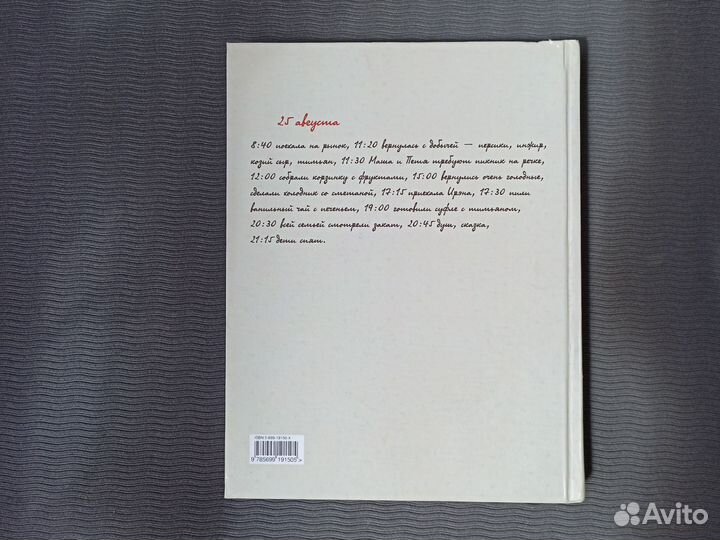 25 августа
8:40 поехала на рынок, 11:20 вернулась с добычей — персики, инжир,
козий сыр, тимьян, 11:30 Маша и Петя требуют пикник на речке,
12:00 собрали корзинку с фруктами, 15:00 вернулись очень голодные,
сделали холодник со сметаной, 17:15 приехала Ирэна, 17:30 пили
ванильный чай с печеньем, 19:00 готовили суфле с тимьяном,
20:30 всей семьей смотрели закат, 20:45 душ, сказка,
21:15 дети спят.
ISBN 5-699-19150-X
9 785699 191505 >
Avito